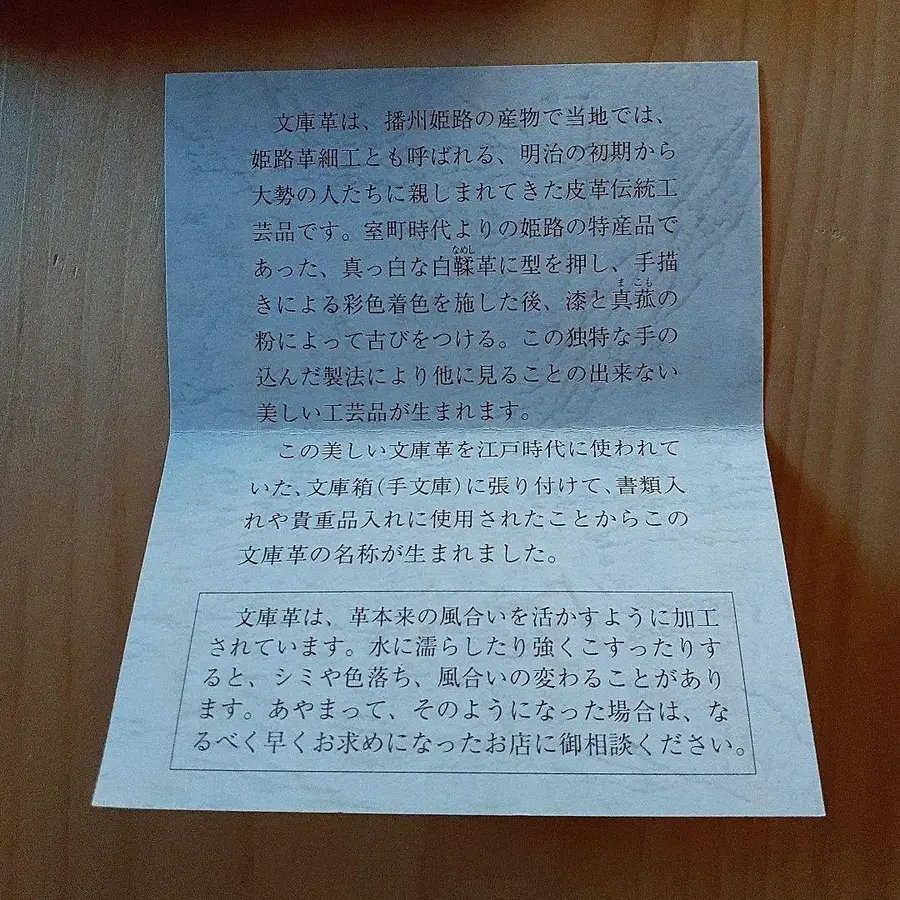 文庫革は、播州姫路の産物で当地では、
姫路革細工とも呼ばれる、明治の初期から
大勢の人たちに親しまれてきた皮革伝統工
芸品です。室町時代よりの姫路の特産品で
なめし
あった、真っ白な白鞣革に型を押し、手描
まこも
きによる彩色着色を施した後、漆と真菰の
粉によって古びをつける。この独特な手の
込んだ製法により他に見ることの出来ない
美しい工芸品が生まれます。
この美しい文庫革を江戸時代に使われて
いた、文庫箱(手文庫)に張り付けて、書類入
れや貴重品入れに使用されたことからこの
文庫革の名称が生まれました。
文庫革は、革本来の風合いを活かすように加工
されています。水に濡らしたり強くこすったりす
ると、シミや色落ち、風合いの変わることがあり
ます。あやまって、そのようになった場合は、な
るべく早くお求めになったお店に御相談ください。